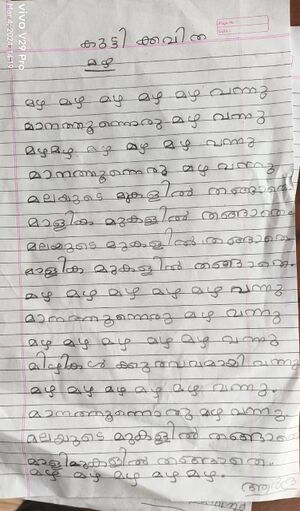 കുട്ടി കവിത
മഴ
മഴ മഴ മഴ മഴ മഴ വന്നു
മാനത്തുന്നൊരു മഴ വന്നു
മഴമഴ മഴ മഴ മഴ വന്നു
മാനത്തുന്നൊരു മഴ വന്നു
മലയുടെ മുകളിൽ തങ്ങാതെ
മാളിക മുകളിൽ തങ്ങാതെ.
മലയുടെ മുകളിൽ തങ്ങാതെ
മാളിക മുകളിൽ തങ്ങാതെ.
മഴ മഴ മഴ മഴ മഴ വന്നു
മാനത്തുന്നൊരു മഴ വന്നു
മഴ മഴ മഴ മഴ മഴ വന്നു
മിഴികൾ വന്നു
മഴ മഴ മഴ മഴ മഴ വന്നു.
മാനത്തുന്നൊരു മഴ വന്നു.
മലയുടെ മുകളിൽ തങ്ങാതെ
മാളിമുകളിൽ തങ്ങാതെ.
മഴ മഴ മഴ മഴ മഴ.
vivo V29 Pro